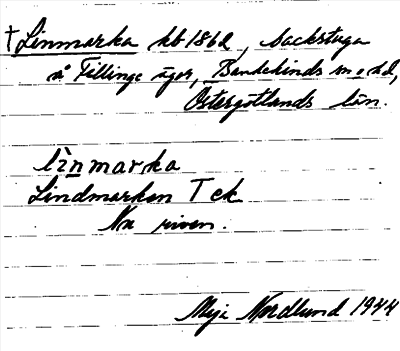 † Linmarka kb 1862, backstuga
å Tillinge ägor, Bankekinds sn o hd,
Östergötlands län.
lìnmarka
Lindmarken T ek
Nu riven.
Maja Nordlund 1944